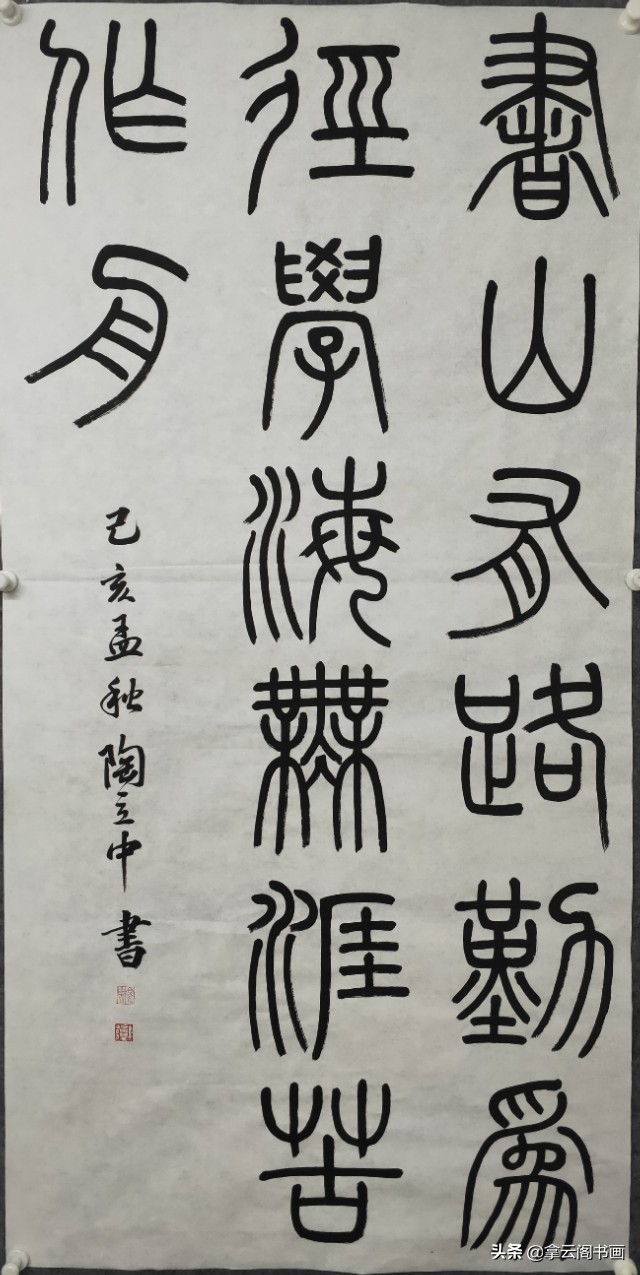 書山有路勤為
徑學海無涯苦
作舟
己亥孟秋陶立中書
头条 @拿云阁书画